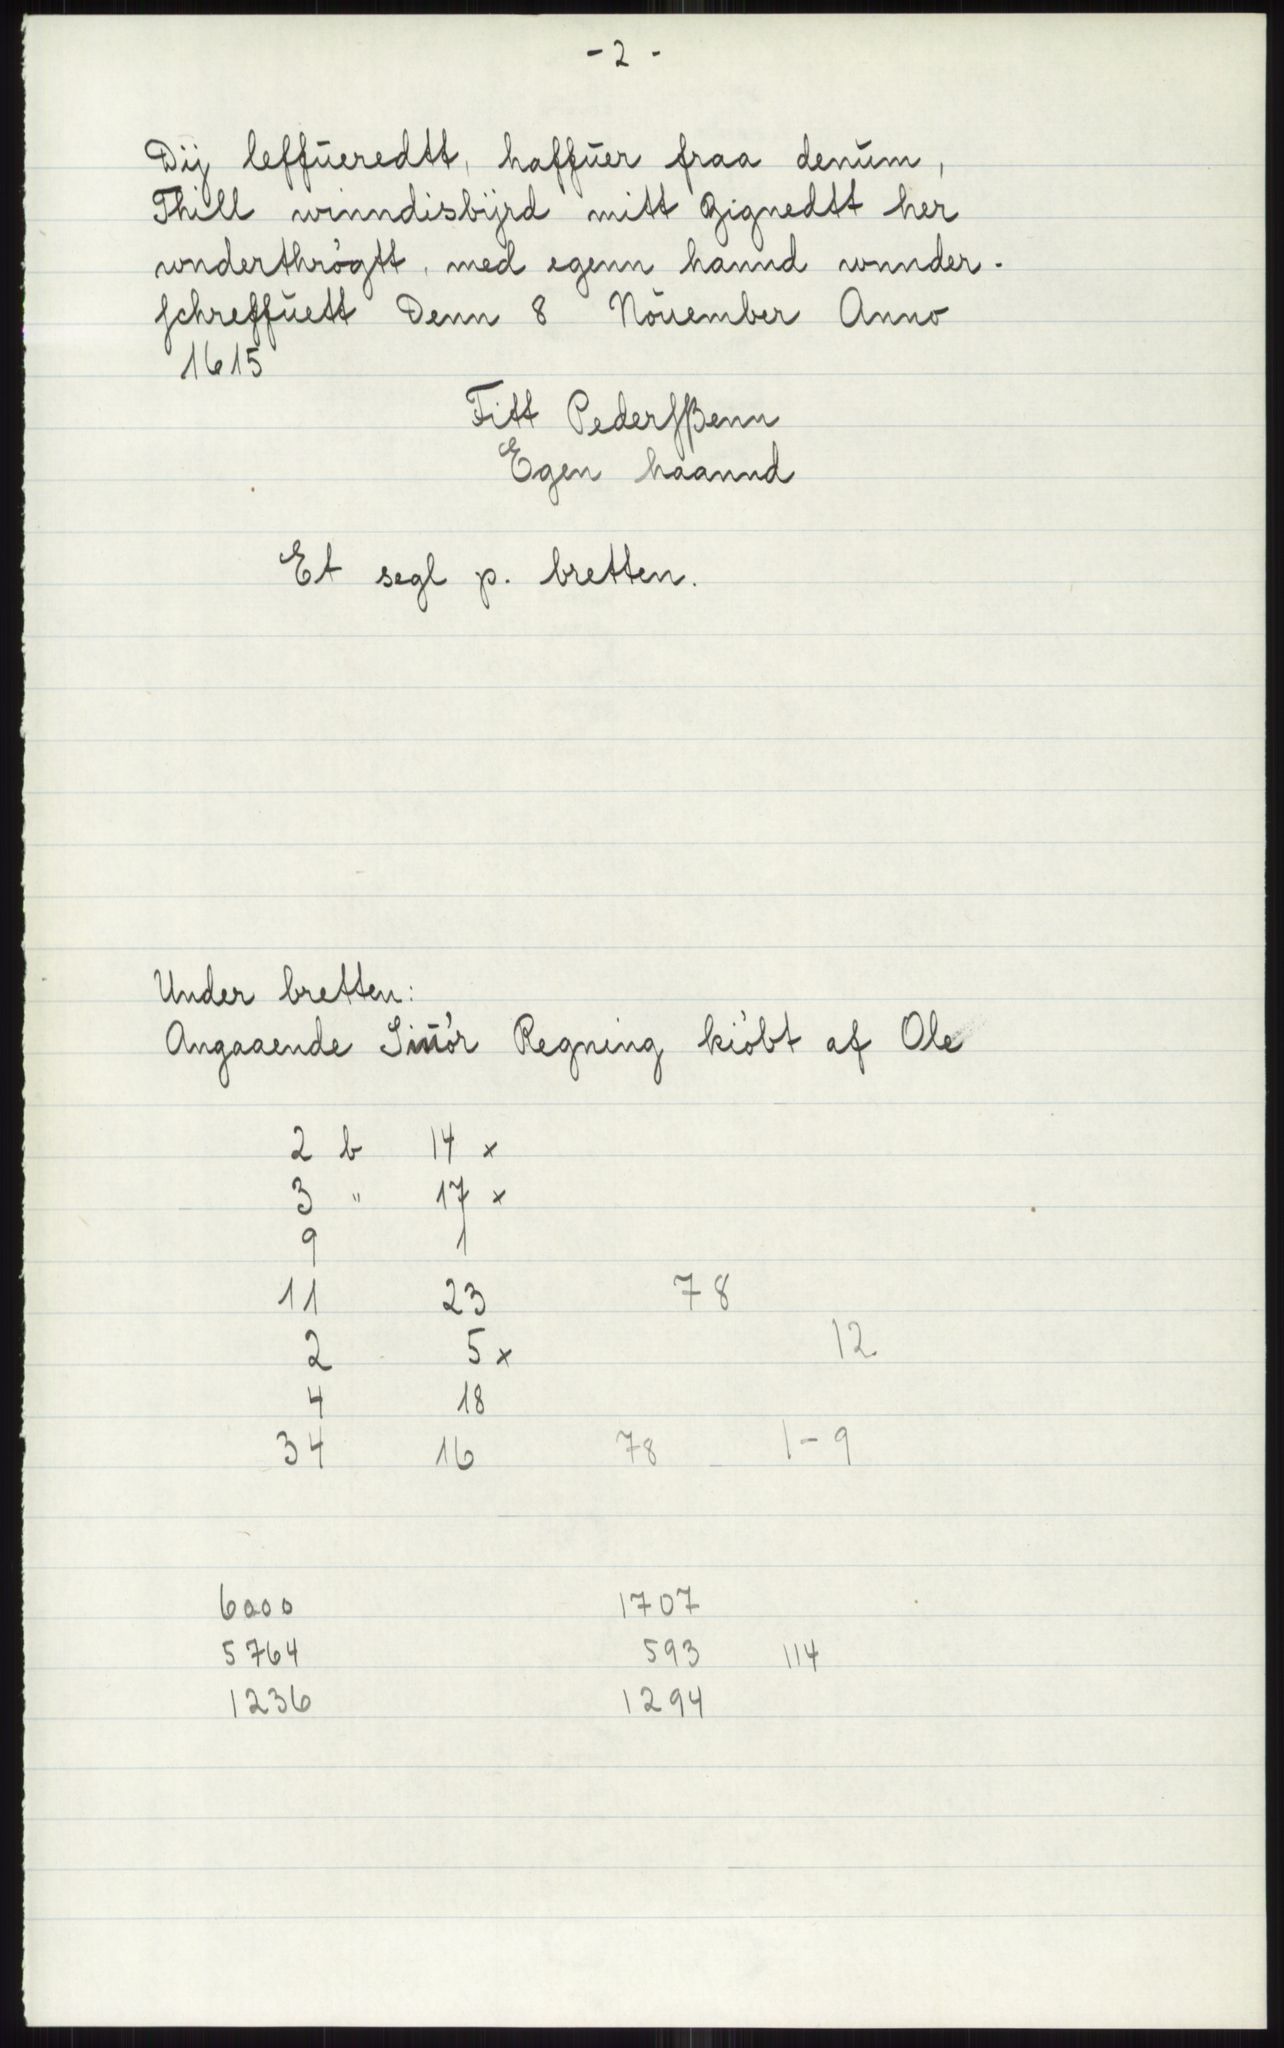 - 2 -
Dij leffūeredtt, haffūer fraa denūm,
Thill winndisbÿrd mitt Zignedtt her
wnderthrögtt, med egenn hannd wnnder-
schreffūett Denn 8 Nouember Anno
1615
Fitt Pedersßenn
Egen haannd
Et segl p. bretten.
Under bretten:
Angaaende Regning kiöbt af Ole
2 b 14 x
3 " 17 x
9 1
11 23 78
2 5 x 12
4 18
34 16 78 1-9
6000 1707
5764 593 114
1236 1294